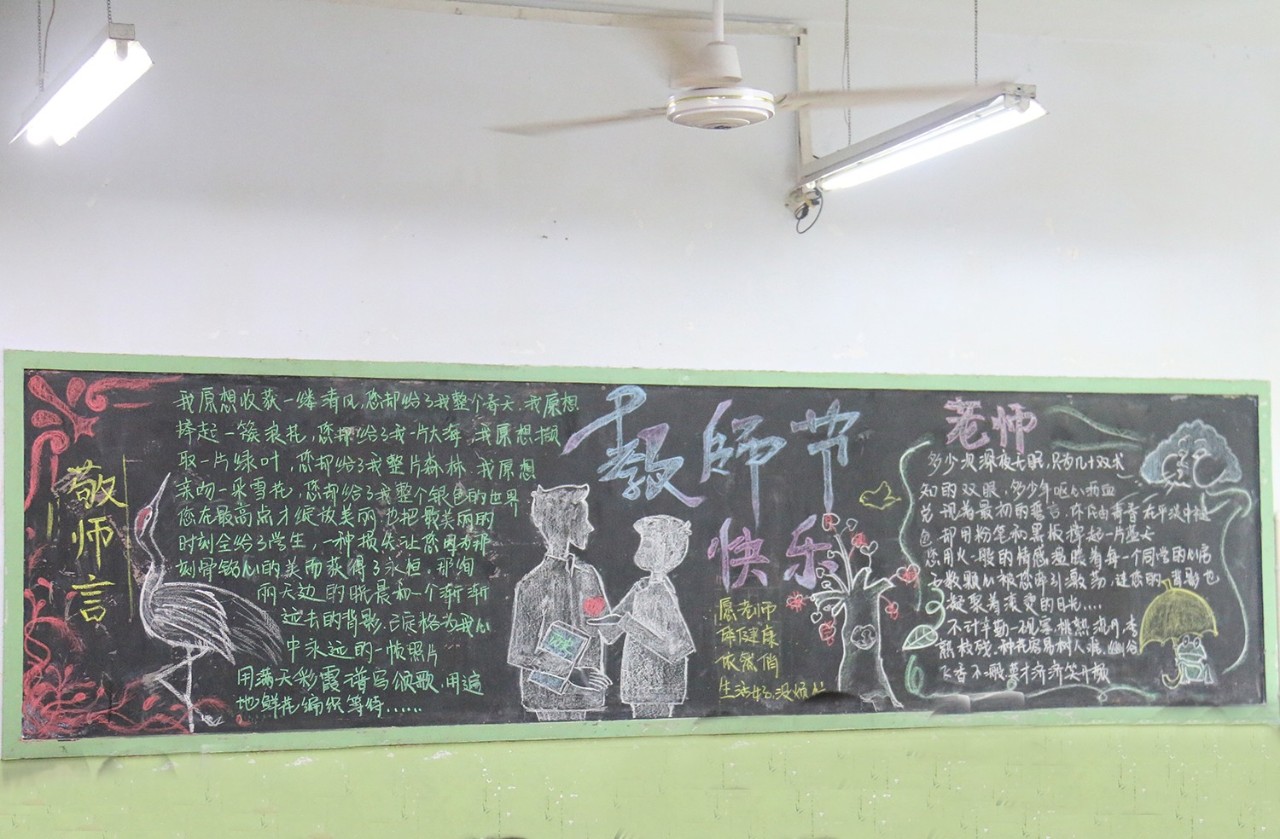 敬师言
我原想收获一缕清风,您却给了我整个春天,我原想
捧起一簇浪花,您却给了我一片大海,我原想撷
取一片绿叶,您却给了我整片森林,我原想
亲吻一朵雪花,您却给了我整个银色的世界
您在最高点才绽放美丽也把最美丽的
时刻全给了学生,一种损失让您因为那
刻骨铭心的美而获得了永恒,那洵
两天边的眺最和一个渐渐
远去的背影,已定格为我心
中永远的一帧照片
用满天彩霞谱写颂歌,用遍
地鲜花编织等待……
教師节
快乐
愿老师
体健康
依然俏
生活
老师
多少次深夜无眠,只为几十双求
知的双眼,多少年呕心沥血
兑现着最初的誓言
都用粉笔和黑板撑起一片蓝天
您用火一般的情感温暖着每一个同学的心房
无数颗心被您牵引激动,连您的背影也
凝聚着滚烫的目光....